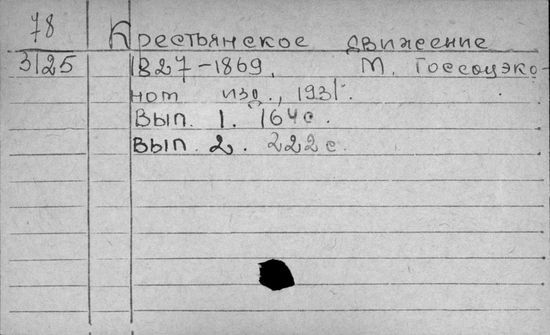 78
Крестьянское движение
3125
1827-1869. М. Госсоцэко-
ном изд., 1931.
Вып. 1. 164 с.
Вып. 2. 222 с.